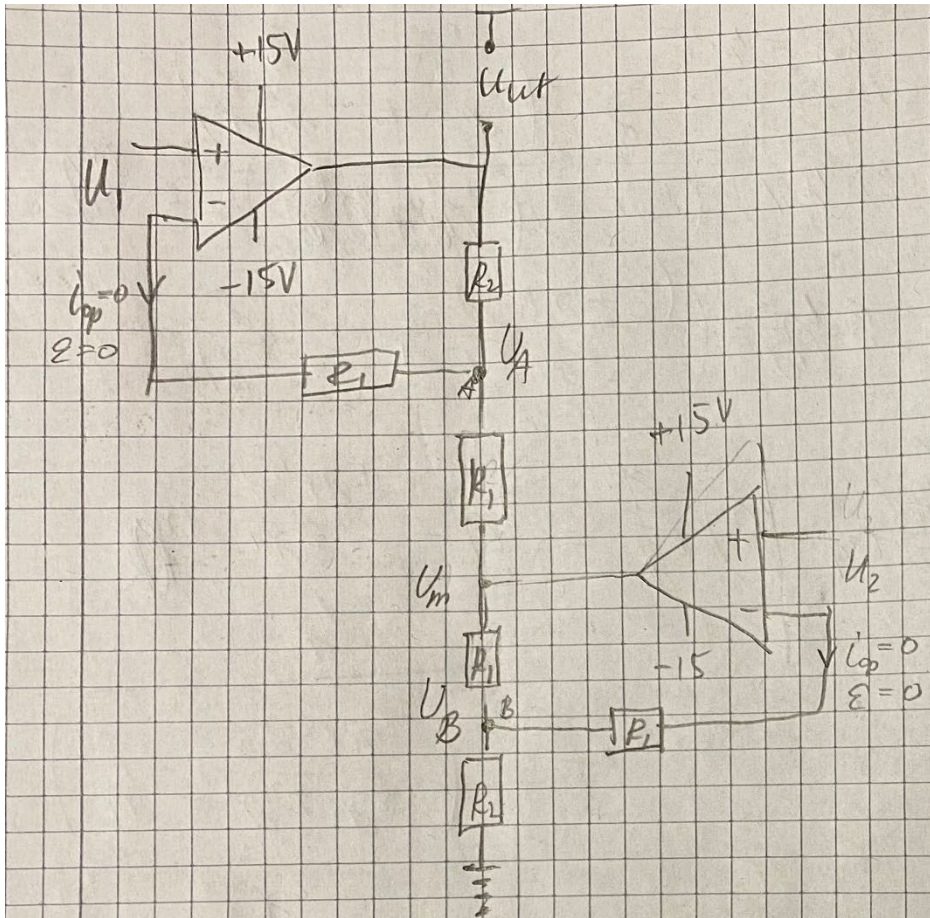 +15V
Uut
U1
+
-
-15V
iop=0
ε=0
R2
UA
A
R1
R1
+15V
Um
+
U2
-
-15
R1
iop=0
ε=0
UB
B
R1
R2